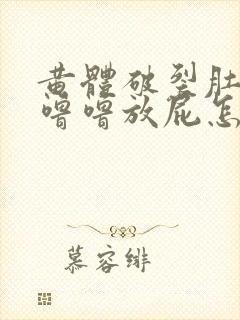 黄體破裂肚
噜噜放屁怎
慕容绯